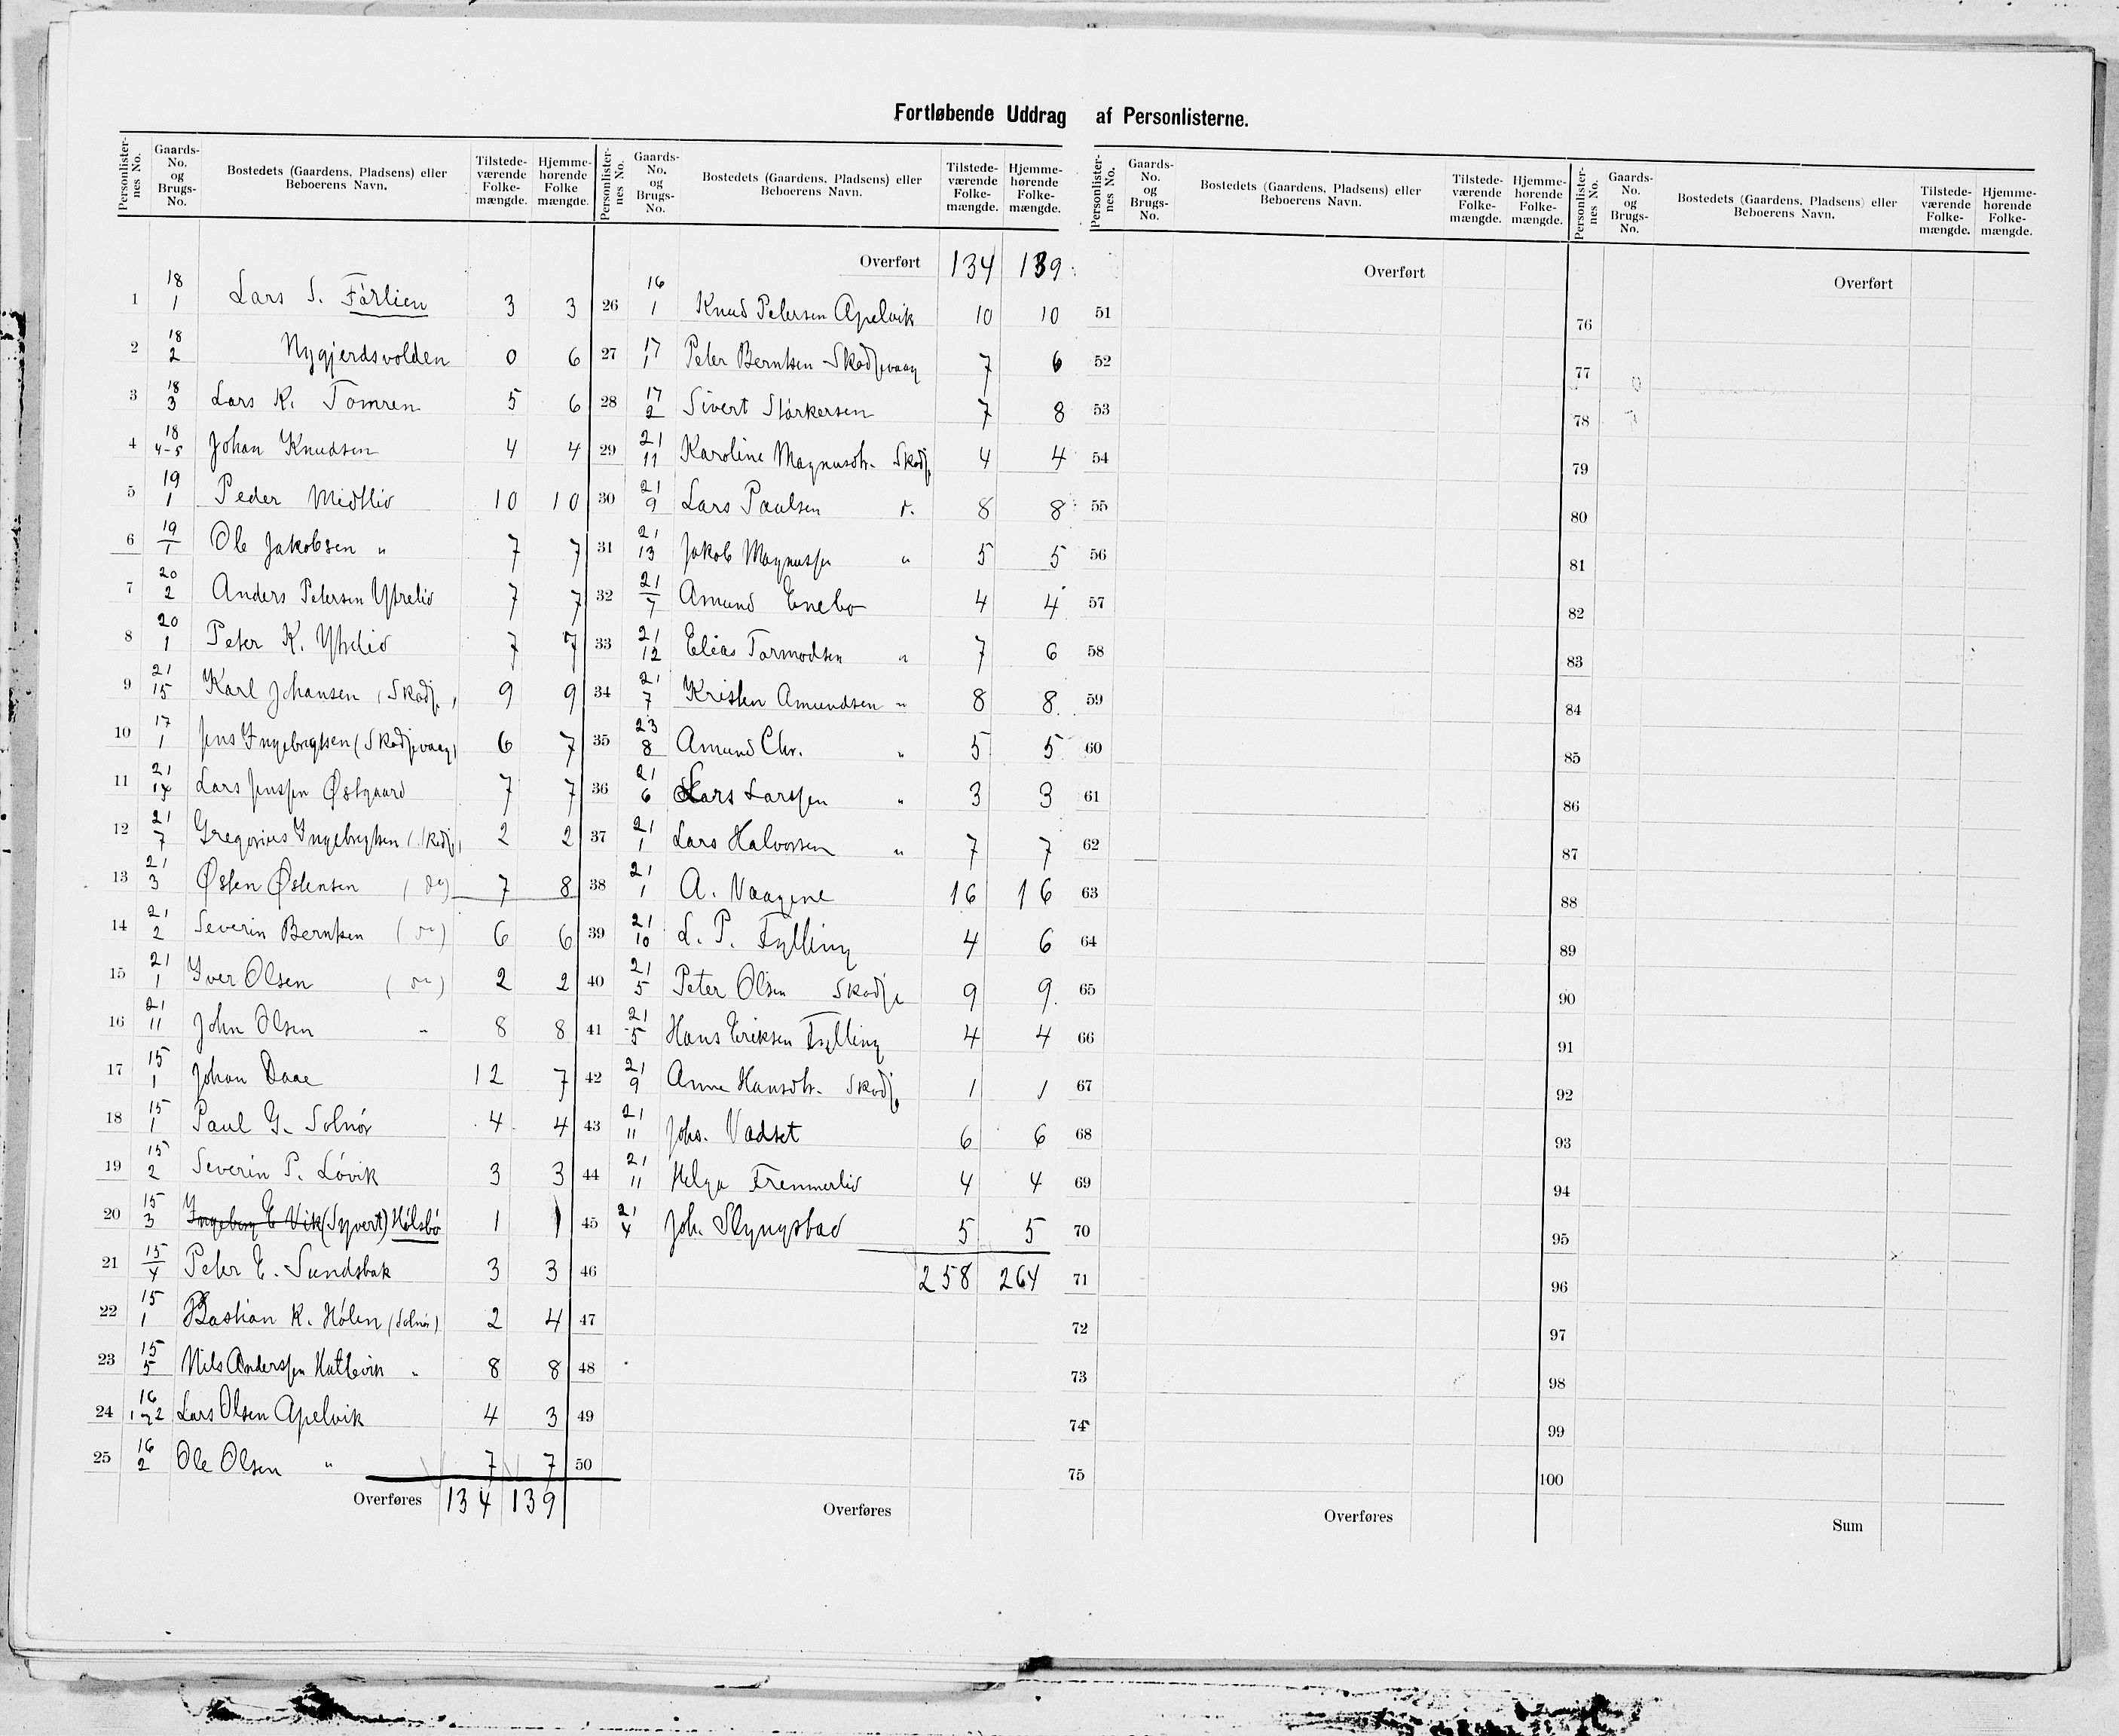 Fortløbende Uddrag af Personlisterne.
Personlister-nes No. Gaards-No. og Brugs-No. Bostedets (Gaardens, Pladsens) eller Beboerens Navn. Tilstede-værende Folke-mængde. Hjemme-hørende Folke mængde.
1 18/1 Lars S. Førlien 3 3
2 18/2 Nygjerdsvolden 0 6
3 18/3 Lars K. Tomren 5 6
4 18/4-5 Johan Knudsen 4 4
5 19/1 Peder Midtlid 10 10
6 19/1 Ole Jakobsen " 7 7
7 20/2 Anders Petersen Ytrelid 7 7
8 20/1 Peter K. Ytrelid 7 7
9 21/15 Karl Johansen (Skodj.) 9 9
10 17/1 Jens Ingebrigtsen (Skodjevaag) 6 7
11 21/14 Lars Jenssen Østgaard 7 7
12 21/7 Gregorius Ingebrigtsen (Skodj) 2 2
13 21/3 Østen Østensen (do) 7 8
14 21/2 Severin Berntsen (do) 6 6
15 21/1 Iver Olsen (do) 2 2
16 21/11 John Olsen " 8 8
17 15/1 Johan Daae 12 7
18 15/1 Paul G. Solnør 4 4
19 15/2 Severin P. Løvik 3 3
20 15/3 Ingeborg E Vik (Syvert) Hølsbø 1 1
21 15/4 Peter E. Sundsbak 3 3
22 15/1 Bastian K. Hølen (Solnør) 2 4
23 15/5 Nils Anderssen Hattevik " 8 8
24 16/1 og 2 Lars Olsen Apelvik 4 3
25 16/2 Ole Olsen " 7 7
Overføres 134 139
Personlister-nes No. Gaards-No. og Brugs-No. Bostedets (Gaardens, Pladsens) eller Beboerens Navn. Tilstede-værende Folke-mængde. Hjemme-hørende Folke-mængde.
Overført 134 139
26 16/1 Knud Petersen Apelvik 10 10
27 17/1 Peter Berntsen Skodjevaag 7 6
28 17/2 Sivert Størkersen 7 8
29 21/11 Karoline Magnusdtr. Skodj. 4 4
30 21/9 Lars Paulsen 8 8
31 21/13 Jakob Magnussen " 5 5
32 21/7 Amund Enebo 4 4
33 21/12 Elias Tormodsen " 7 6
34 21/7 Kristen Amundsen " 8 8
35 23/8 Amund Chr. " 5 5
36 21/6 Lars Larssen " 3 3
37 21/1 Lars Halvorsen " 7 7
38 21/1 A. Vaagene 16 16
39 21/10 L. P. Fylling 4 6
40 21/5 Peter Olsen Skodje 9 9
41 21/5 Hans Eriksen Fylling 4 4
42 21/9 Anne Hansdtr. Skodj. 1 1
43 21/11 Johs. Vadset 6 6
44 21/11 Helga Fremmerlid 4 4
45 21/4 Joh. Slyngstad 5 5
46 258 264
47
48
49
50
Overføres
Personlister-nes No. Gaards-No. og Brugs-No. Bostedets (Gaardens, Pladsens) eller Beboerens Navn. Tilstede-værende Folke-mængde. Hjemme-hørende Folke-mængde.
Overført
51
52
53
54
55
56
57
58
59
60
61
62
63
64
65
66
67
68
69
70
71
72
73
74
75
Overføres
Personlister-nes No. Gaards-No. og Brugs-No. Bostedets (Gaardens, Pladsens) eller Beboerens Navn. Tilstede-værende Folke-mængde. Hjemme-hørende Folke-mængde.
Overført
76
77
78
79
80
81
82
83
84
85
86
87
88
89
90
91
92
93
94
95
96
97
98
99
100
Sum